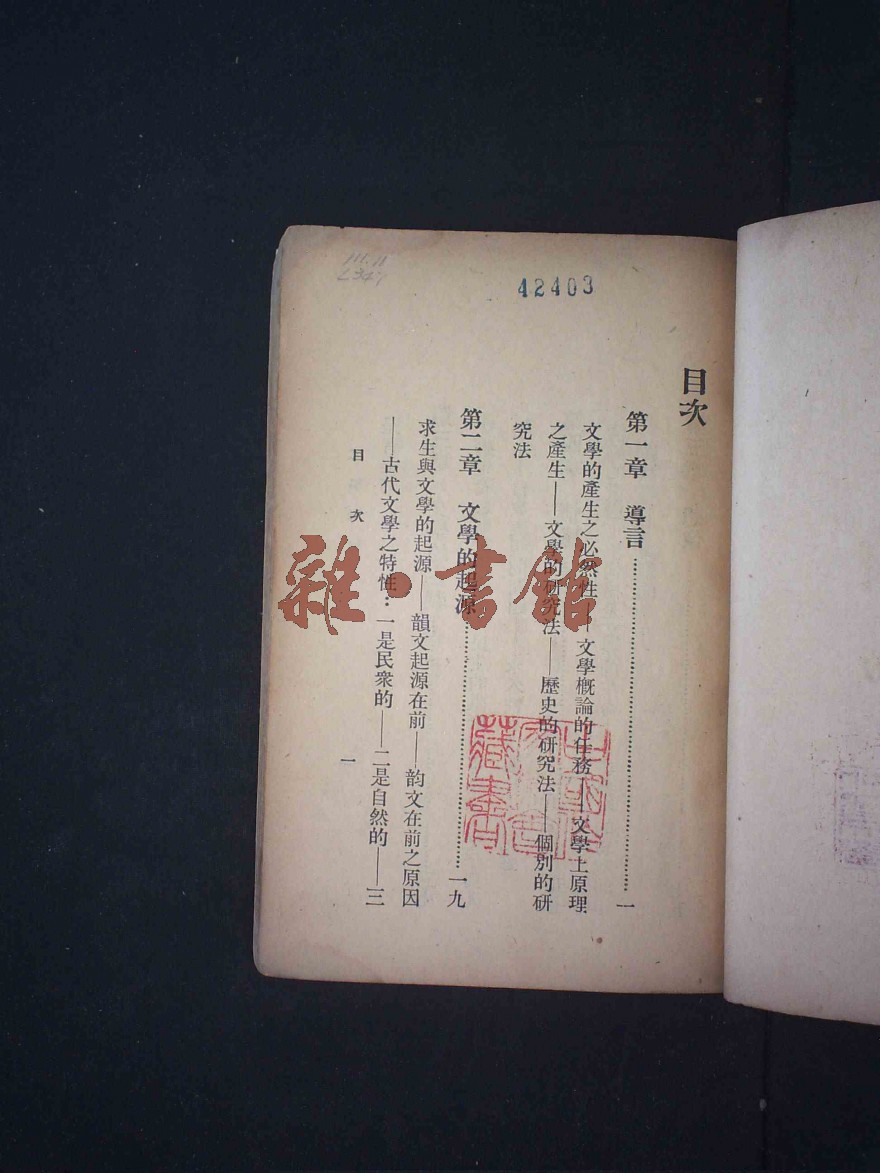 42403
目次
第一章　導言…………………………一
文學的產生之必然性——文學概論的任務——文學上原理
之產生——文學的研究法——歷史的研究法——個別的研
究法
第二章　文學的起源…………………………一九
求生與文學的起源——韻文起源在前——韵文在前之原因
——古代文學之特性：一是民衆的——二是自然的——三
目次　一
雜·書館
藏書